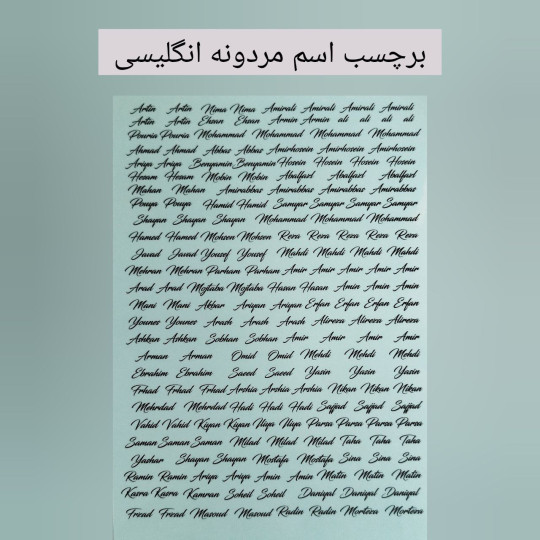 برچسب اسم مردونه انگلیسی
Artin Artin Nima Nima Amirali Amirali Amirali Amirali
Artin Artin Ehsan Ehsan Armin Armin ali ali ali ali
Pouria Pouria Mohammad Mohammad Mohammad Mohammad
Ahmad Ahmad Abbas Abbas Amirhosein Amirhosein Amirhosein
Ariya Ariya Benyamin Benyamin Hosein Hosein Hosein Hosein
Hesam Hesam Mobin Mobin Abalfazl Abalfazl Abalfazl
Mahan Mahan Amirabbas Amirabbas Amirabbas Amirabbas
Pouya Pouya Hamid Hamid Samyar Samyar Samyar Samyar
Shayan Shayan Shayan Mohammad Mohammad Mohammad
Hamed Hamed Mohsen Mohsen Reza Reza Reza Reza Reza
Javad Javad Yousef Yousef Mahdi Mahdi Mahdi Mahdi
Mehran Mehran Parham Parham Amir Amir Amir Amir Amir
Arad Arad Mojtaba Mojtaba Hasan Hasan Amin Amin Amin
Mani Mani Akbar Ariyan Ariyan Erfan Erfan Erfan Erfan
Younes Younes Arash Arash Arash Alireza Alireza Alireza
Ashkan Ashkan Sobhan Sobhan Amir Amir Amir Amir
Arman Arman Omid Omid Mehdi Mehdi Mehdi
Ebrahim Ebrahim Saeed Saeed Yasin Yasin Yasin
Frhad Frhad Frhad Arshia Arshia Arshia Nikan Nikan Nikan
Mehrdad Mehrdad Hadi Hadi Hadi Sajjad Sajjad Sajjad
Vahid Vahid Kayan Kayan Iliya Iliya Parsa Parsa Parsa Parsa
Saman Saman Saman Milad Milad Milad Taha Taha Taha
Yashar Shayan Shayan Mostafa Mostafa Sina Sina Sina
Ramin Ramin Ariya Ariya Amin Amin Matin Matin Matin
Kasra Kasra Kamran Soheil Soheil Daniyal Daniyal Daniyal
Frzad Frzad Masoud Masoud Radin Radin Morteza Morteza